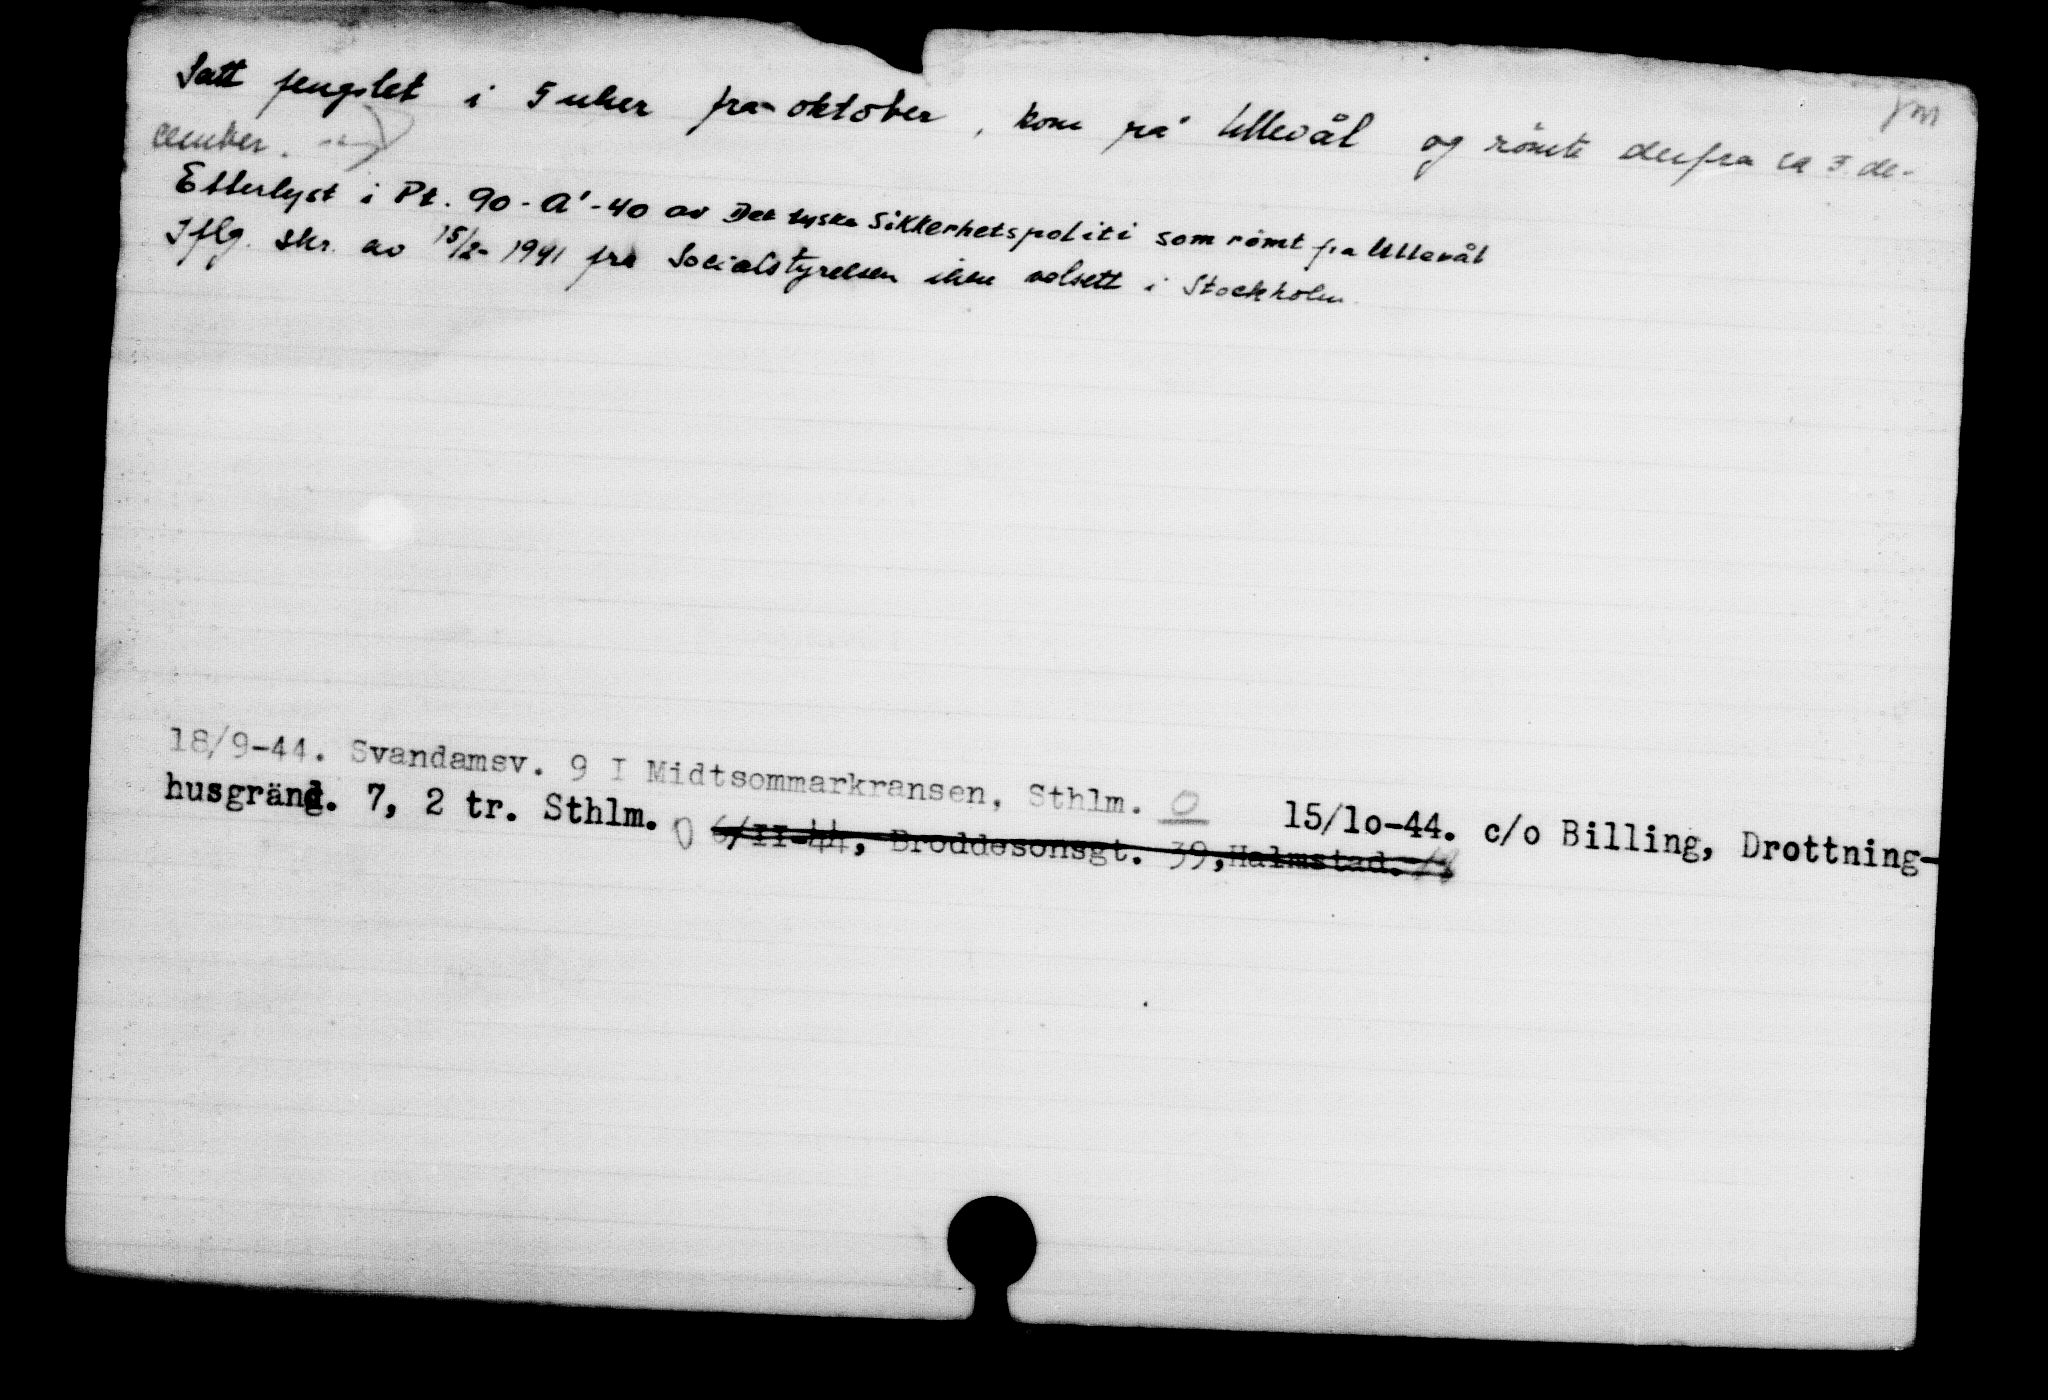 Satt fengslet i 5 uker fra oktober, kom på Ullevål og römte derfra ca 3. de-
cember.
Etterlyst i Pt. 90-A'-40 av Det tyske Sikkerhetspoliti som römt fra Ullevål
Iflg. skr. av 15/2-1941 fra Socialstyrelsen ikke velsett i Stockholm
18/9-44. Svandamsv. 9 I Midtsommarkransen, Sthlm. O 15/1o-44. c/o Billing, Drottning-
husgränd. 7, 2 tr. Sthlm. 0 6/II-44, Broddesonsgt. 39,Halmstad.